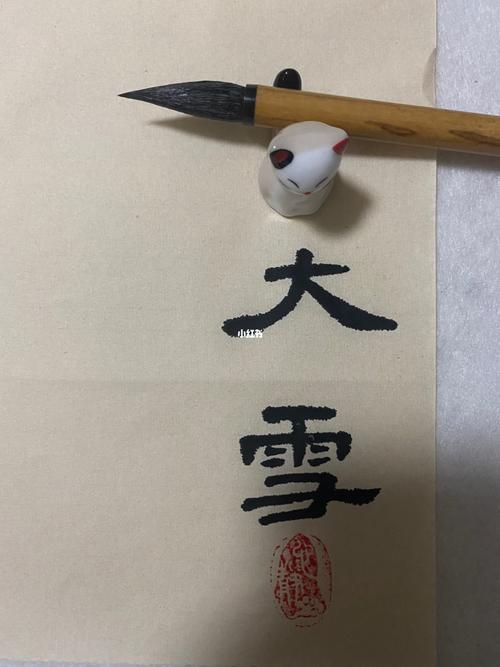 大
雪
小红书